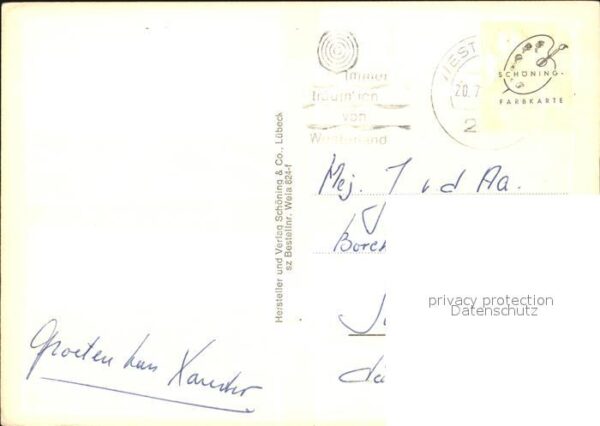 immer
träum' ich
von
Westerland
WEST
20. 7
2
SCHÖNING-
FARBKARTE
Hersteller und Verlag Schöning & Co., Lübeck
sz Bestellnr. Wela 624-f
Mej. J v d Aa.
privacy protection
Datenschutz
Groeten van Xander